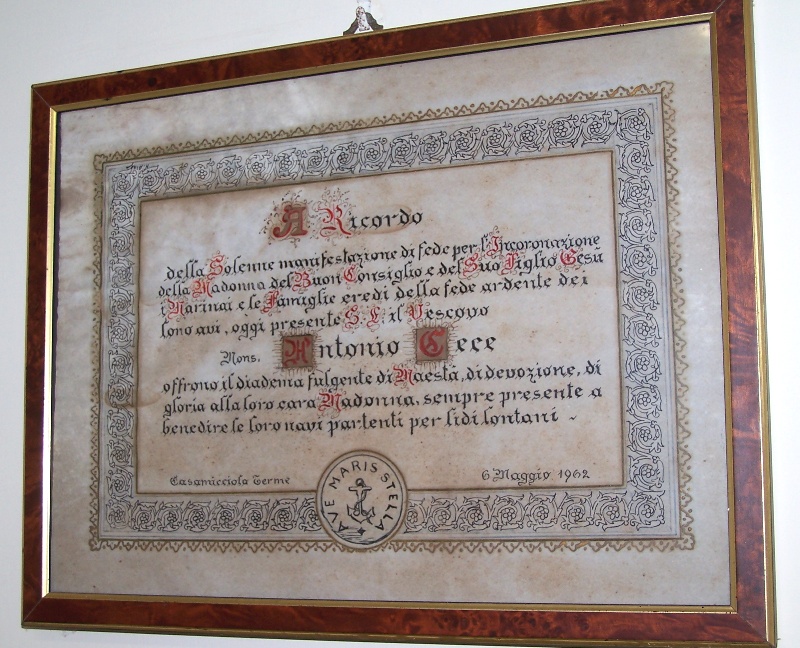 A Ricordo
della Solenne manifestazione di fede per l'Incoronazione
della Madonna del Buon Consiglio e del Suo Figlio Gesu
i Marinai e le Famiglie eredi della fede ardente dei
loro avi, oggi presente S. E. il Vescovo
Mons. Antonio Cece
offrono il diadema fulgente di Maestà, di devozione, di
gloria alla loro cara Madonna, sempre presente a
benedire le loro navi partenti per lidi lontani ~
Casamicciola Terme 6 Maggio 1962
AVE MARIS STELLA